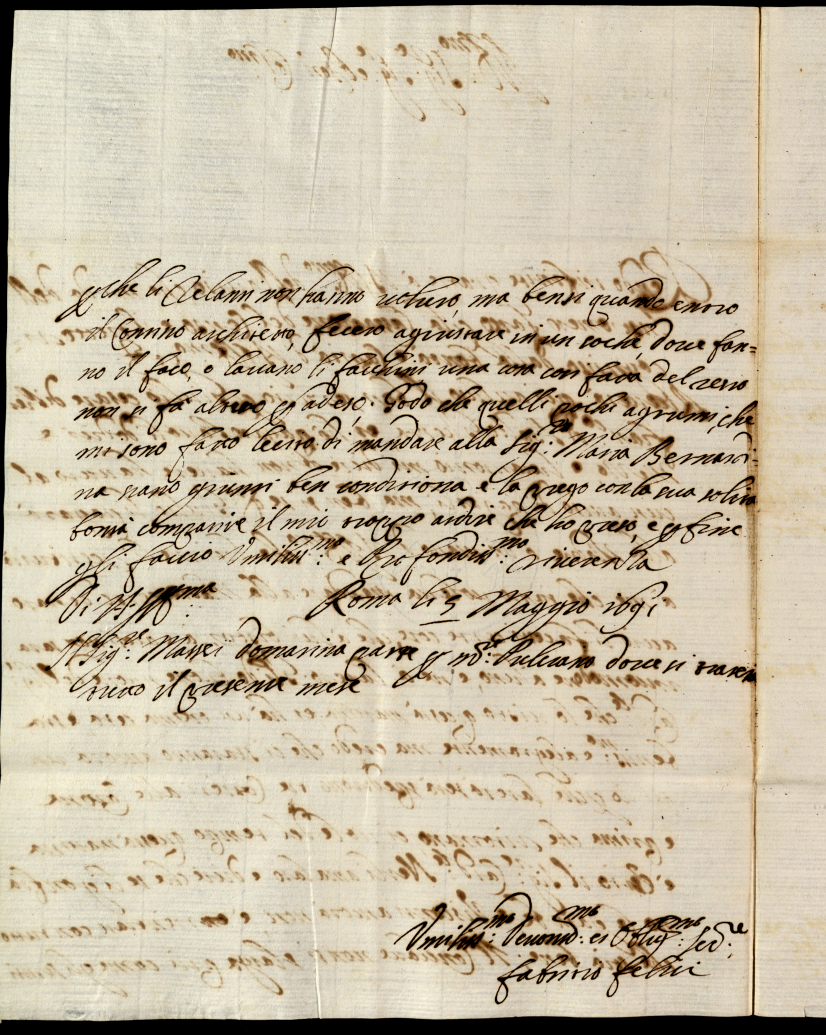 che li Zelanti non hanno voluto, ma bensi quando entro
il Contino architetto, fecero agiustare in un loché, dove fan=
no il foco, e lavano li facchini una cosa con fava del resto
non si fa altro p adeso. Godo che quelli pochi agrumi, che
mi sono fatto lecito di mandare alla Sig.ra Maria Bernardi=
na siano giunti ben conditiona e la prego con la sua solita
bontà compatire il mio troppo ardire che ho preso, e p fine
gli faccio Umiliss.mo e Profondiss.mo riverenza
Di V. S. Ill.ma Roma li 5 Maggio 1691
Il Sig.re Massei domatina parte p M.te Pulciano dove si trateră
tutto il presente mese
Umiliss.mo Devotiss.mo et Oblig.mo Ser.re
Fabritio Felici